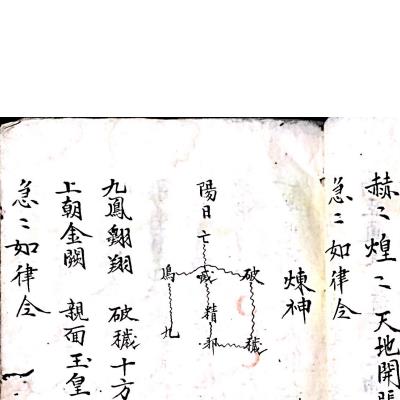 赫〻煌〻天地開張
急〻如律令
煉神
破穢
陽日亡
精邪
鳥
九
九鳳翱翔破穢十方
上朝金闕親面玉皇
急〻如律令